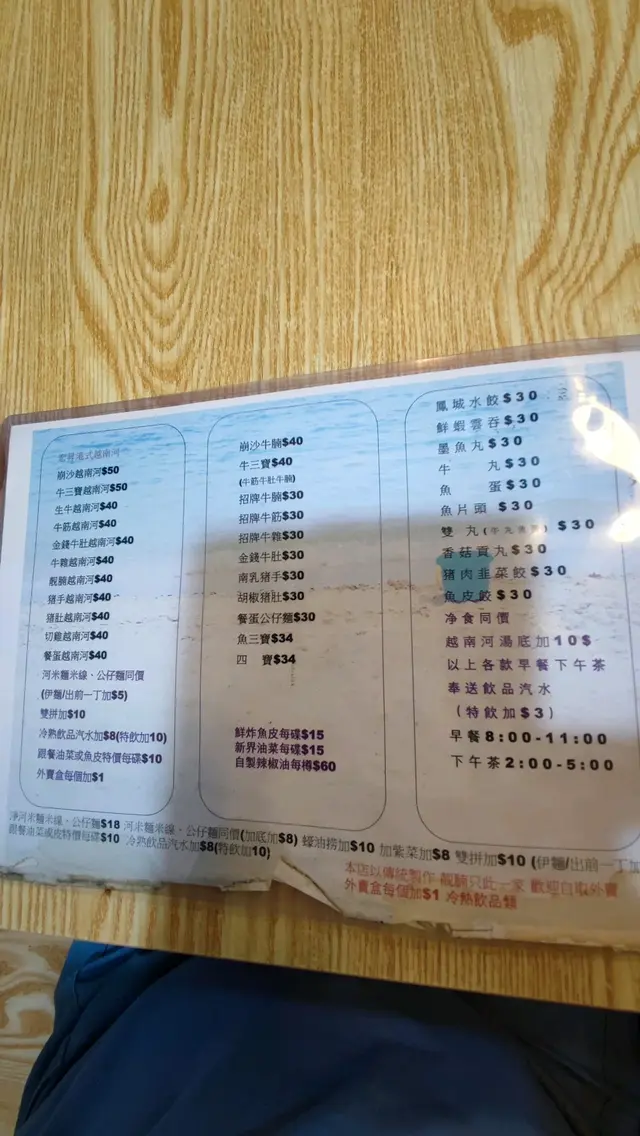 港式越南河
崩沙越南河$50
牛三寶越南河$50
生牛越南河$40
牛筋越南河$40
金錢牛肚越南河$40
牛雜越南河$40
靚腩越南河$40
豬手越南河$40
豬肚越南河$40
切雞越南河$40
餐蛋越南河$40
河米麵米線、公仔麵同價
(伊麵/出前一丁加$5)
雙拼加$10
冷熱飲品汽水加$8(特飲加10)
跟餐油菜或魚皮特價每碟$10
外賣盒每個加$1
崩沙牛腩$40
牛三寶$40
(牛筋牛肚牛腩)
招牌牛腩$30
招牌牛筋$30
招牌牛雜$30
金錢牛肚$30
南乳豬手$30
胡椒豬肚$30
餐蛋公仔麵$30
魚三寶$34
四 寶$34
鮮炸魚皮每碟$15
新界油菜每碟$15
自製辣椒油每樽$60
鳳城水餃$30
鮮蝦雲吞$30
墨魚丸$30
牛 丸$30
魚 蛋$30
魚片頭 $30
雙 丸 $30
香菇貢丸$30
豬肉韭菜餃$30
魚皮餃$30
净食同價
越南河湯底加10$
以上各款早餐下午茶
奉送飲品汽水
(特飲加$3)
早餐8:00-11:00
下午茶2:00-5:00
净河米麵米線、公仔麵$18 河米麵米線、公仔麵同價(加底加$8) 蠔油撈加$10 加紫菜加$8 雙拼加$10 (伊麵/出前一丁加
跟餐油菜或皮特價每碟$10 冷熱飲品汽水加$8(特飲加10)
本店以傳統製作 靚腩只此一家 歡迎自取外賣
外賣盒每個加$1 冷熱飲品類